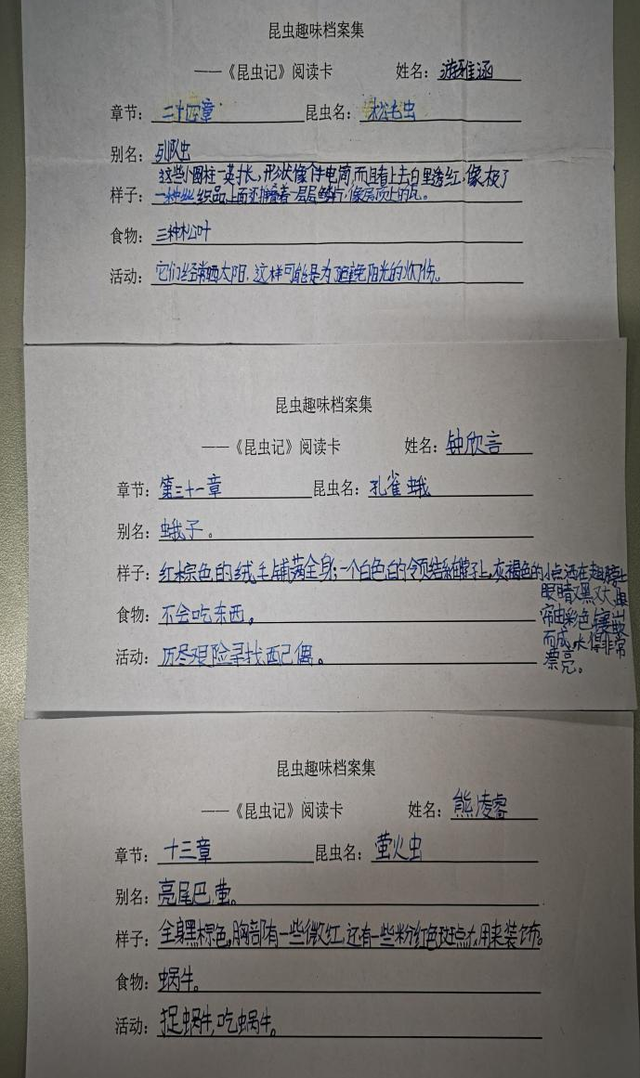 昆虫趣味档案集
——《昆虫记》阅读卡 姓名：游雅涵
章节：二十四章 昆虫名：松毛虫
别名：列队虫
这些小圆柱一英寸长，形状像个手电筒，而且看上去白里透红，像极了
样子：一种丝织品，上面还铺着一层层鳞片，像房顶上的瓦。
食物：三种松叶
活动：它们经常晒太阳，这样可能是为了避免阳光的灼伤。
昆虫趣味档案集
——《昆虫记》阅读卡 姓名：钟欣言
章节：第三十一章 昆虫名：孔雀蛾
别名：蛾子。
样子：红棕色的绒毛铺满全身；一个白色的领结系在脖子上，灰褐色的小点洒在翅膀上
眼睛又黑又大
由彩色
而成，长得非常
漂亮。
食物：不会吃东西。
活动：历尽艰险寻找配偶。
昆虫趣味档案集
——《昆虫记》阅读卡 姓名：熊凌睿
章节：十三章 昆虫名：萤火虫
别名：亮尾巴萤。
样子：全身黑棕色，胸部有一些微红，还有一些粉红色斑点，用来装饰。
食物：蜗牛。
活动：捉蜗牛，吃蜗牛。